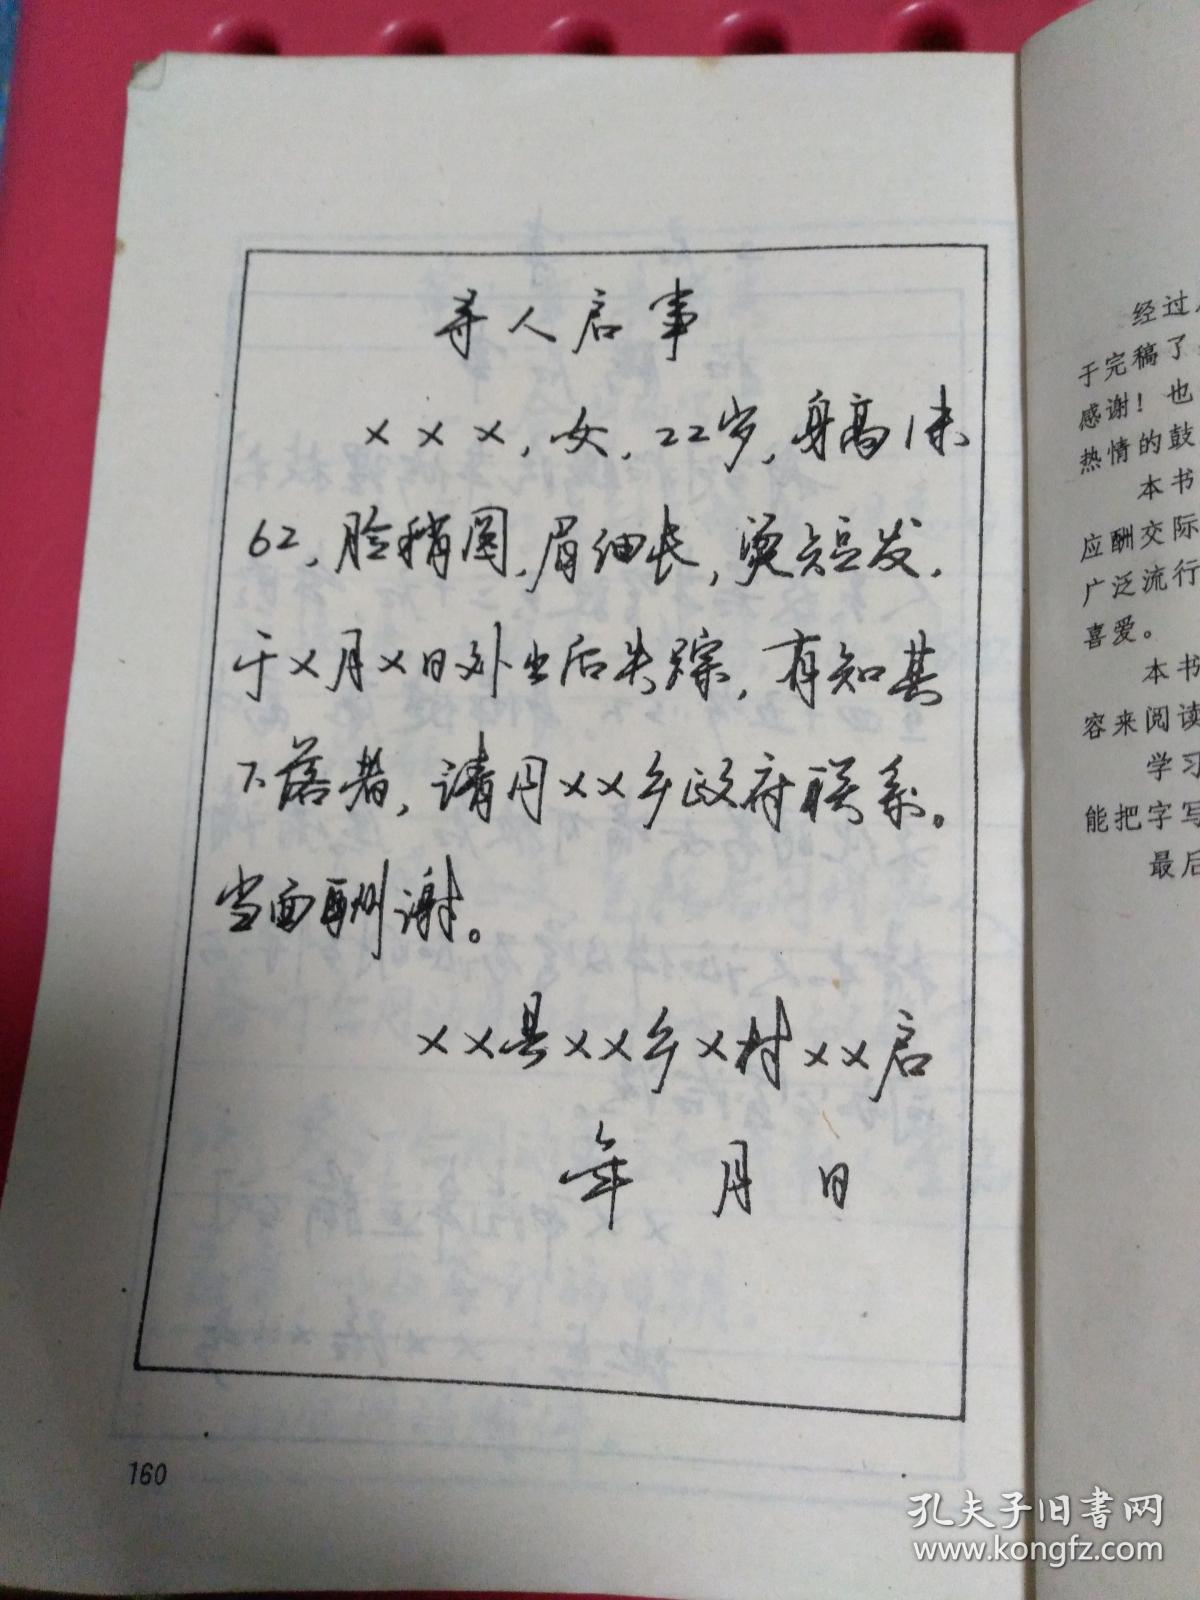 寻人启事
×××，女，22岁，身高1米
62，脸稍圆，眉细长，烫短发，
于×月×日外出后失踪，有知其
下落者，请同××乡政府联系。
当面酬谢。
××县××乡×村××启
年 月 日
160
经过
于完稿了
感谢！也
热情的鼓
本书
应酬交际
广泛流行
喜爱。
本书
容来阅读
学习
能把字写
最后
孔夫子旧书网
www.kongfz.com